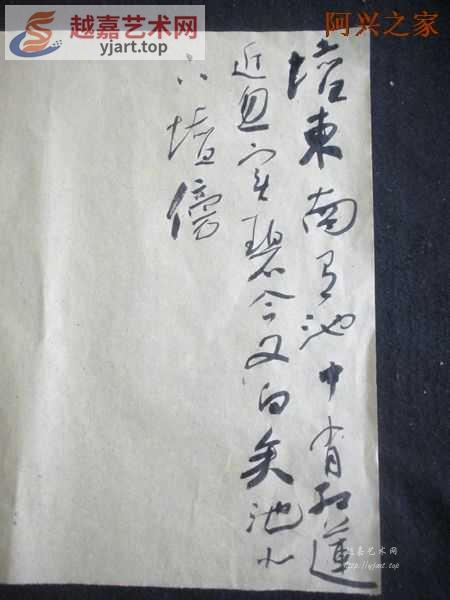 越嘉艺术网
yjart.top
阿兴之家
墙東南有池中有红蓮
近忽变碧今又白矣池水
墙傍
越嘉艺术网
http://yjart.top